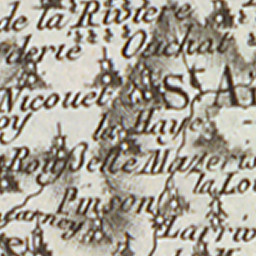 de la Riviere
derie Ouchat
Nicouet St Ai
ey la Haye
Rou Belle Mazeris
la Lou
Pinson
arney Larriv